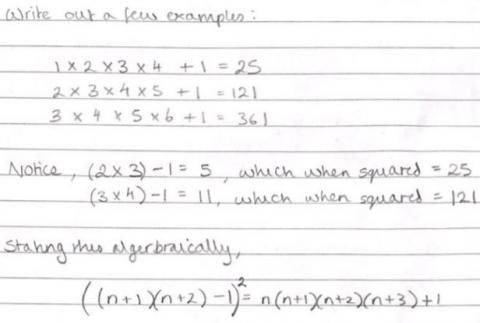 Write out a few examples:
1 × 2 × 3 × 4 + 1 = 25
2 × 3 × 4 × 5 + 1 = 121
3 × 4 × 5 × 6 + 1 = 361
Notice, (2 × 3) - 1 = 5, which when squared = 25
(3 × 4) - 1 = 11, which when squared = 121
Stating this algerbraically,
((n+1)(n+2) - 1)² = n(n+1)(n+2)(n+3) + 1